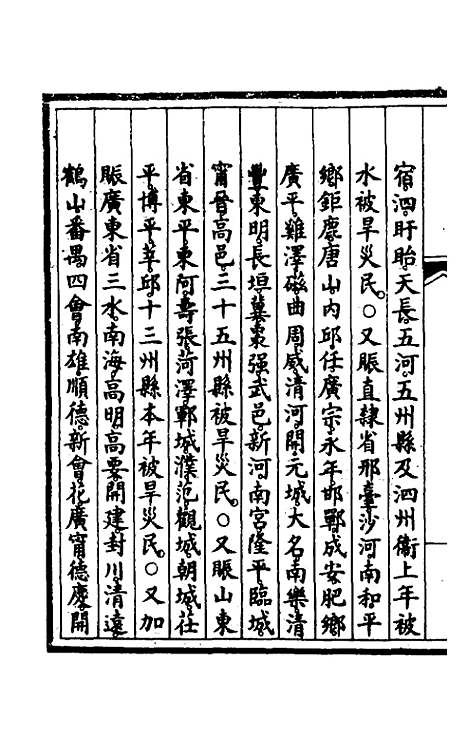 宿泗盱眙天長五河五州縣及泗州衞上年被
水被旱災民○又賑直隸省邢臺沙河南和平
鄉鉅鹿唐山内邱任廣宗永年邯鄲成安肥鄉
廣平雞澤磁曲周威清河開元城大名南樂清
豐東明長垣冀棗强武邑新河南宮隆平臨城
甯晉高邑三十五州縣被旱災民○又賑山東
省東平東阿壽張菏澤鄆城濮范觀城朝城茌
平博平莘邱十三州縣本年被旱災民○又加
賑廣東省三水南海高明高要開建封川清遠
鶴山番禺四會南雄順德新會花廣甯德慶開